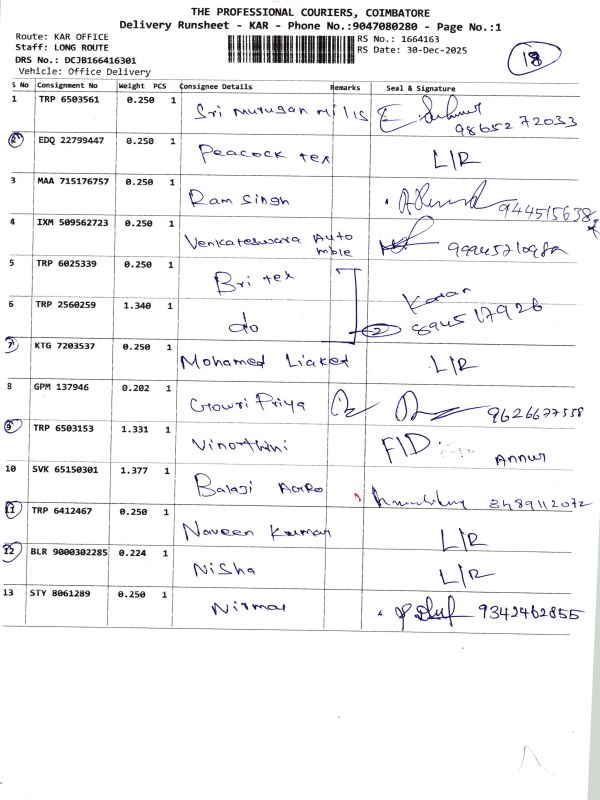 THE PROFESSIONAL COURIERS, COIMBATORE
Delivery Runsheet - KAR - Phone No.:9047080280 - Page No.:1
Route: KAR OFFICE
Staff: LONG ROUTE
DRS No.: DCJB166416301
Vehicle: Office Delivery
RS No.: 1664163
RS Date: 30-Dec-2025
S No Consignment No Weight PCS Consignee Details Remarks Seal & Signature
1 TRP 6503561 0.250 1 Sri Murugan Mills 98652 72033
2 EDQ 22799447 0.250 1 Peacock tex L/R
3 MAA 715176757 0.250 1 Ram Singh
4 IXM 509562723 0.250 1 Venkateswara Auto
mbile
5 TRP 6025339 0.250 1 Bri tex
6 TRP 2560259 1.340 1 do 2 8945 17926
7 KTG 7203537 0.250 1 Mohamed Liaked L/R
8 GPM 137946 0.202 1 Gowri Priya 9626677558
9 TRP 6503153 1.331 1 Vinorthini FID Annur
10 SVK 65150301 1.377 1 Balaji Agro
11 TRP 6412467 0.250 1 Naveen Kumar L/R
12 BLR 9000302285 0.224 1 Nisha L/R
13 STY 8061289 0.250 1 Nirmal 9342462855